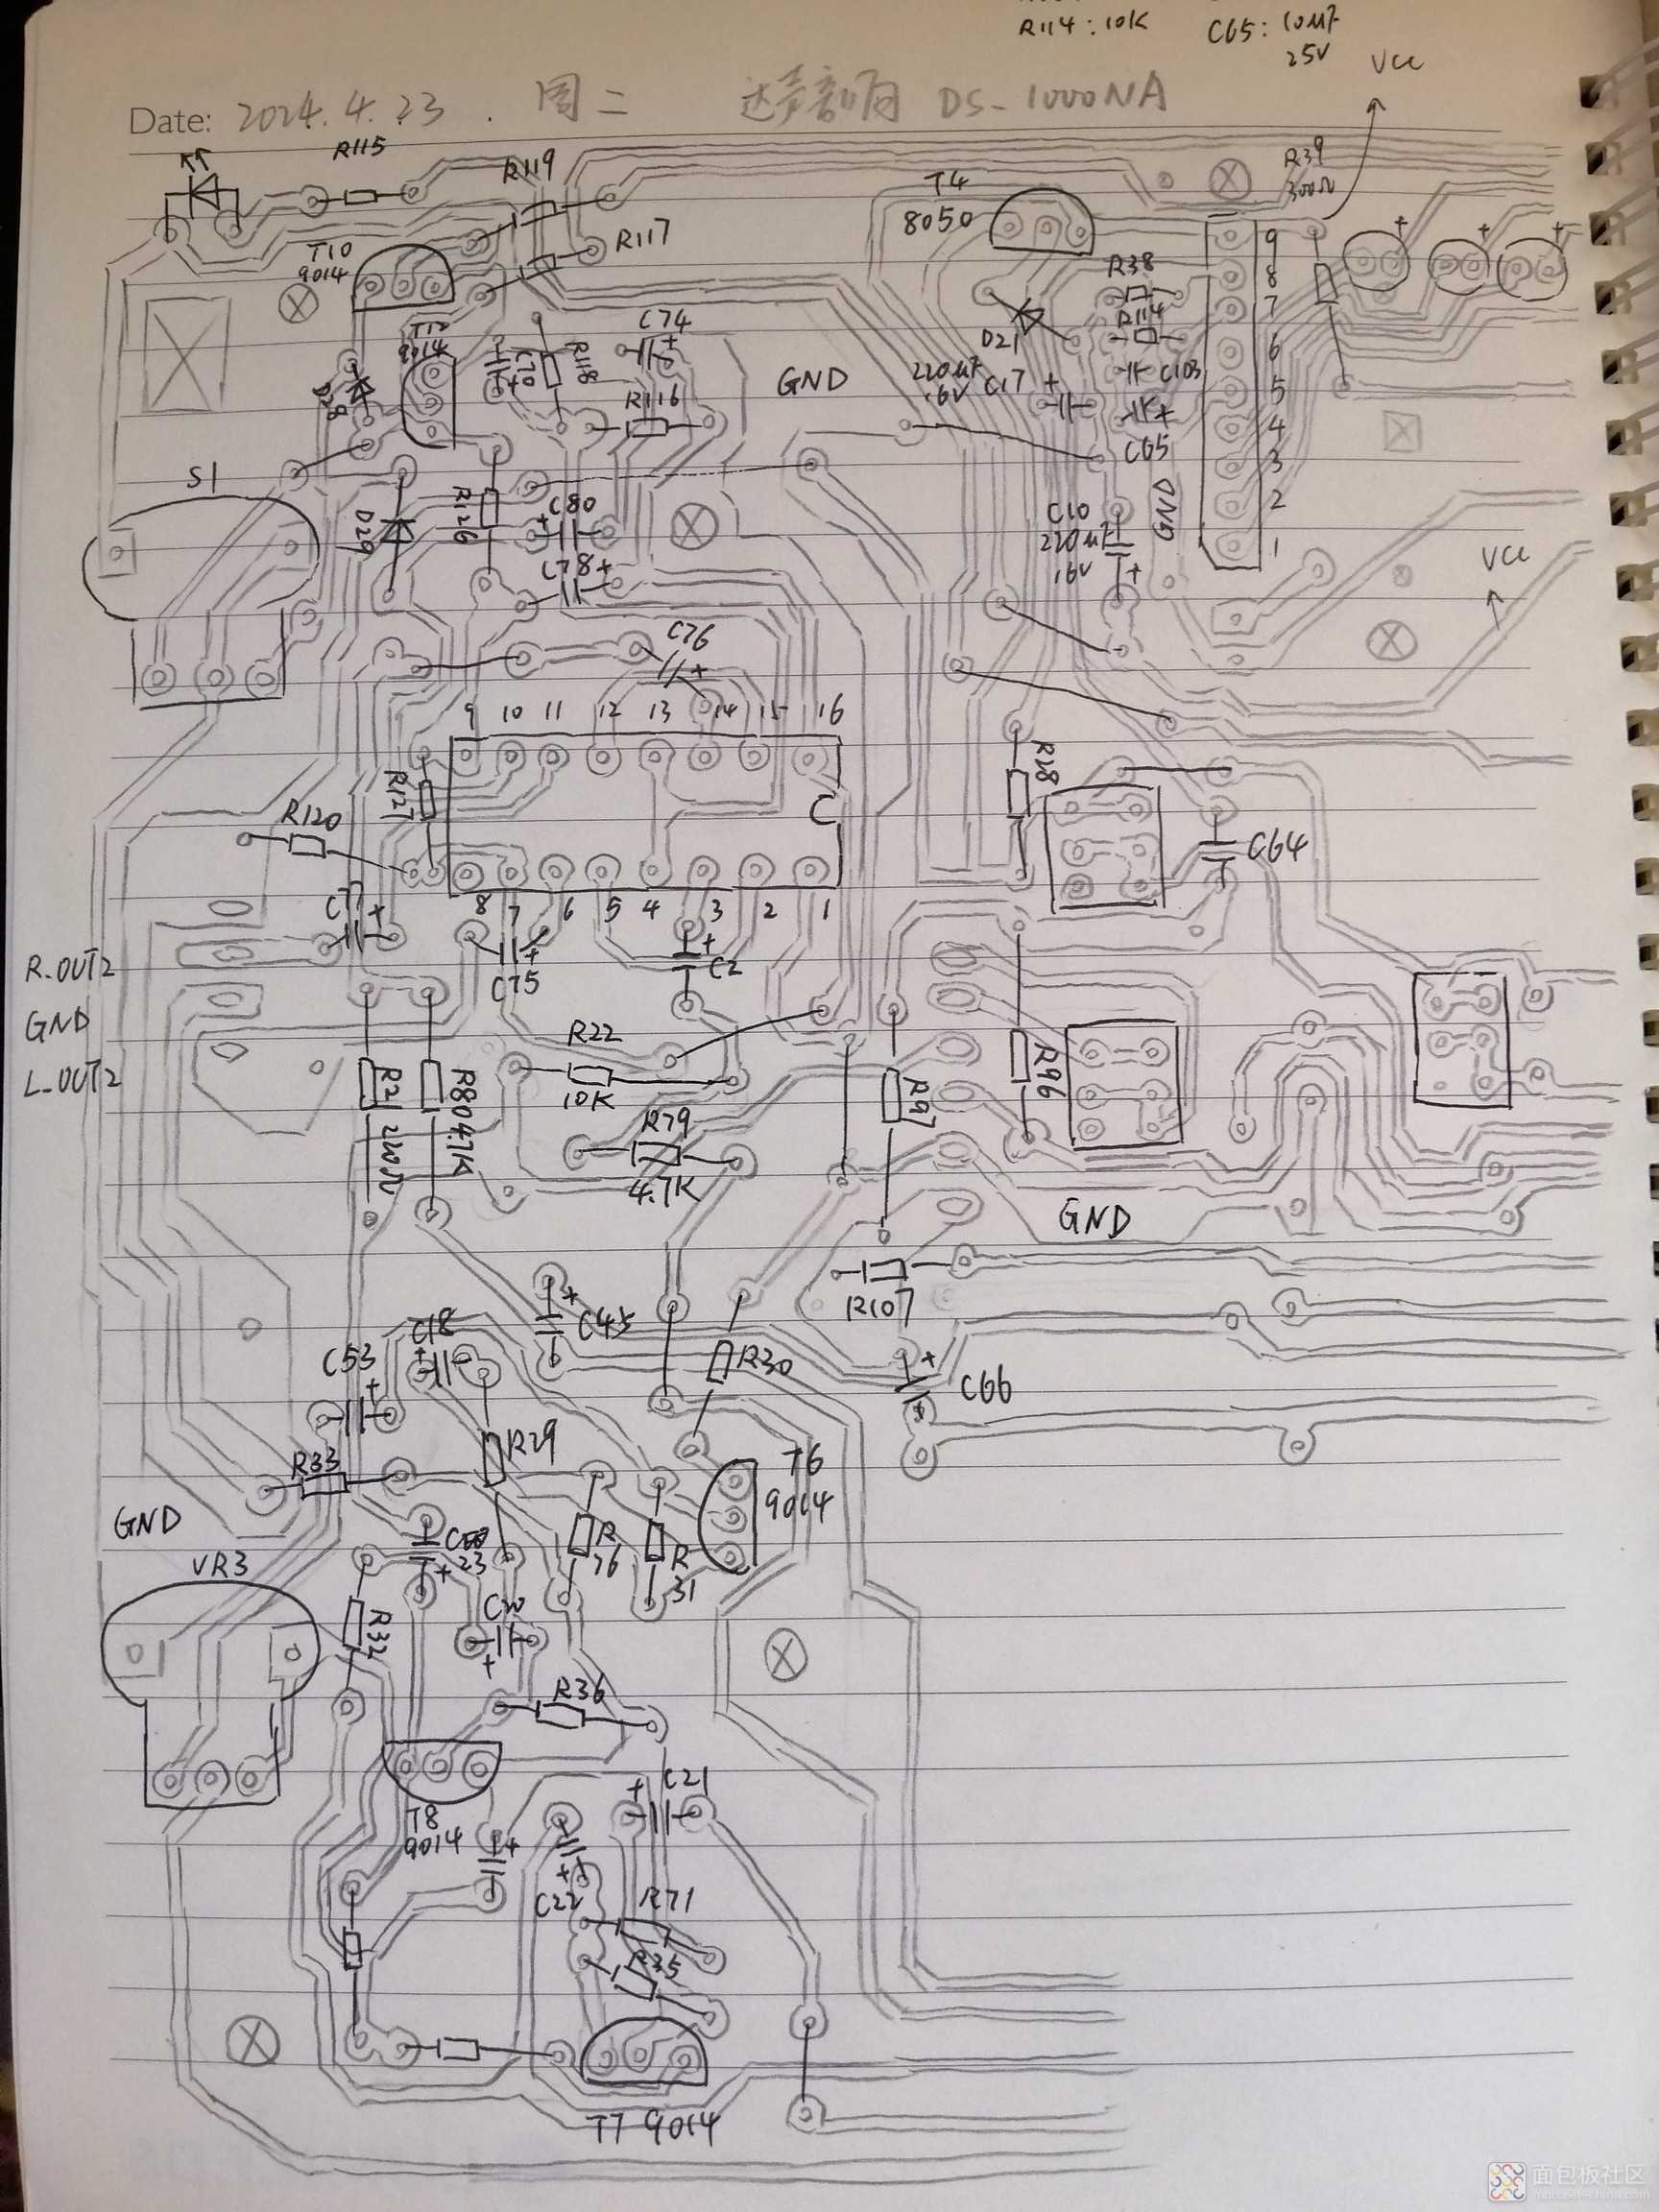 R114：10K
C65：10μF
25V
VCC
Date: 2024.4.23. 周二 达声 DS-1000NA
R115
R119
R117
T4
8050
R39
300Ω
T10
9014
T12
9014
D28
C70
R118
C74
R116
GND
D21
R38
R114
C103
220μF
16V
C17
C65
9
8
7
6
5
4
3
2
1
S1
D29
R126
C80
C78
C10
220μF
16V
GND
VCC
C76
9 10 11 12 13 14 15 16
R127
R120
C
R18
C64
8 7 6 5 4 3 2 1
C77
C75
C2
R_OUT2
GND
L_OUT2
R22
10K
R21
220Ω
R80
4.7K
R79
4.7K
R97
R96
GND
R107
C45
C18
C53
R30
C66
R33
R29
T6
9014
GND
VR3
C23
R76
R31
R32
C20
R36
T8
9014
C21
C22
R71
R35
T7 9014
面包板社区
mbb.eet-china.com